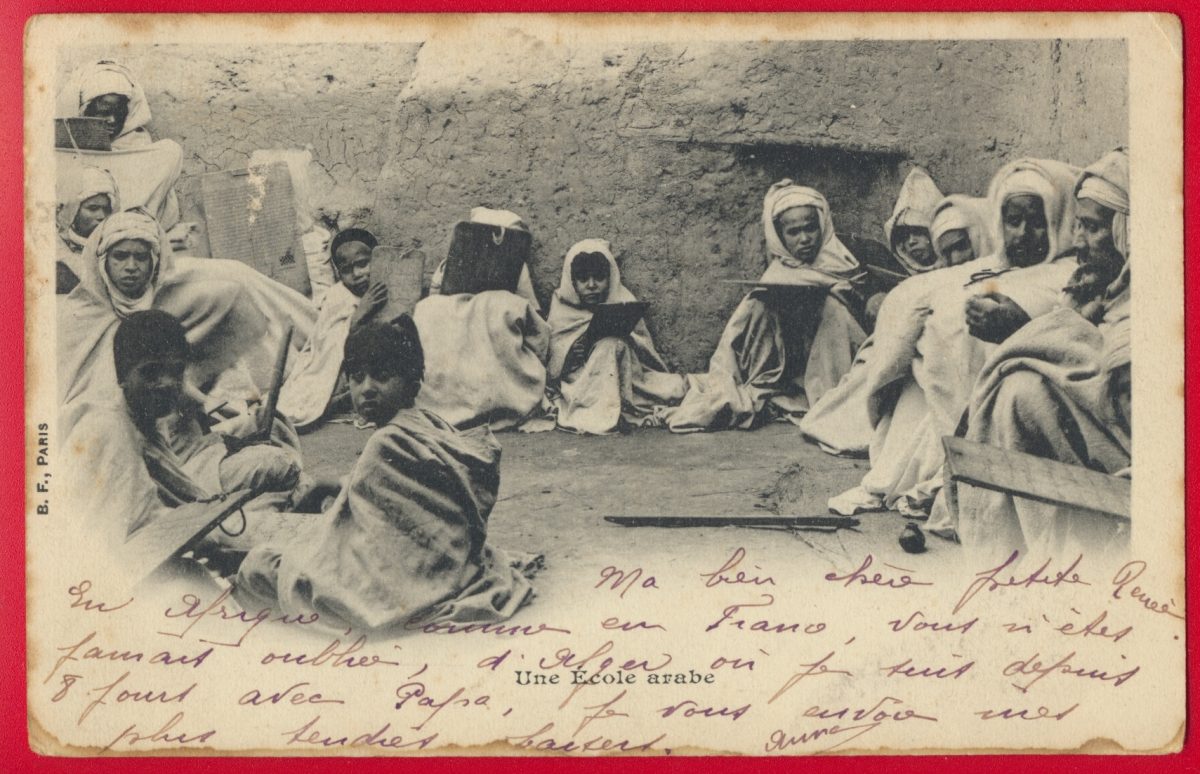 B. F., PARIS
Ma bien chère petite Renée.
En Afrique, comme en France, vous n'êtes
jamais oubliée, d'Alger où je suis depuis
Une École arabe
8 jours avec Papa, je vous envoie mes
plus tendres baisers. Anna